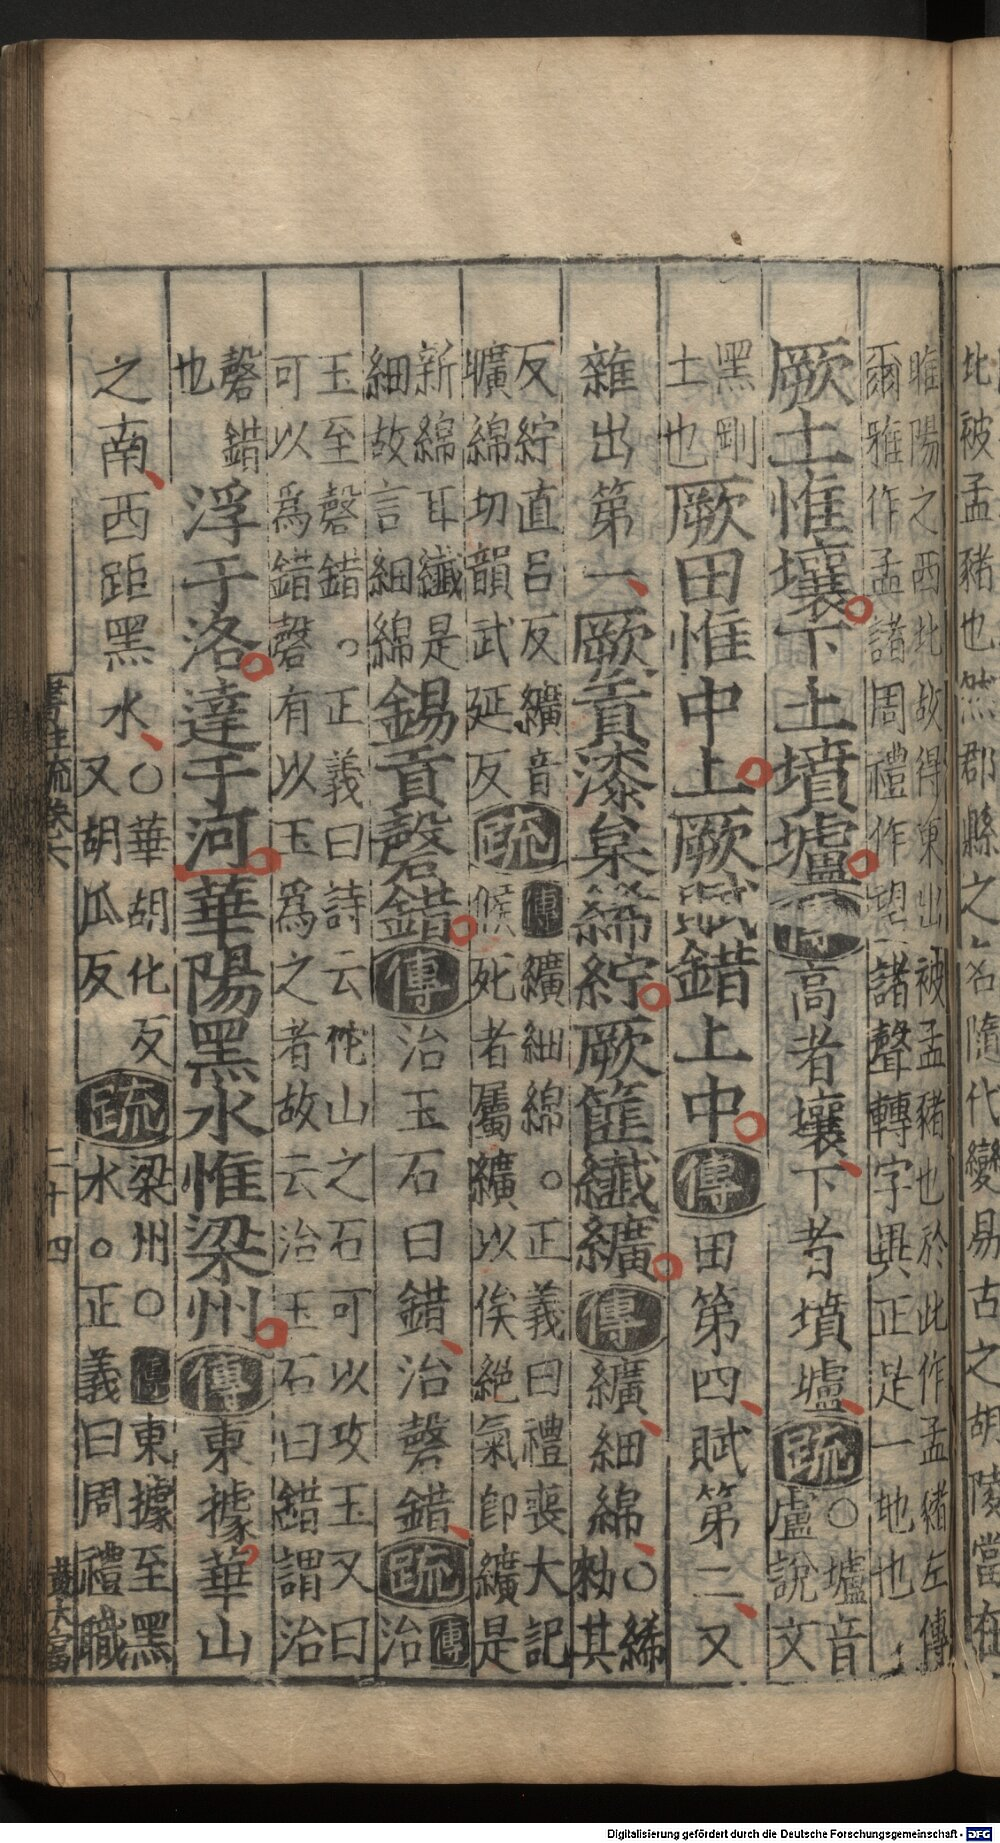 雎陽之西北故得東出被孟豬也於此作孟豬左傳
爾雅作孟諸周禮作望諸聲轉字異正是一地也
厥土惟壤下土墳壚傳高者壤下者墳壚疏○壚音
盧說文
黑剛
土也厥田惟中上厥賦錯上中傳田第四賦第二又
雜出第一厥貢漆枲絺紵厥篚纖纊傳纊細綿○絺
敕其
反紵直呂反纊音
曠綿切韻武延反疏傳纊細綿○正義曰禮喪大記
候死者屬纊以俟絕氣即纊是
新綿耳纖是
細故言細綿錫貢磬錯傳治玉石曰錯治磬錯疏傳
治
玉至磬錯○正義曰詩云佗山之石可以攻玉又曰
可以為錯磬有以玉為之者故云治玉石曰錯謂治
磬錯
也浮于洛達于河華陽黑水惟梁州傳東據華山
之南西距黑水○華胡化反
又胡瓜反疏梁州○傳東據至黑
水○正義曰周禮職
二十四
比被孟豬也然郡縣之名隨代變易古之胡陵當在
Digitalisierung gefördert durch die Deutsche Forschungsgemeinschaft - DFG